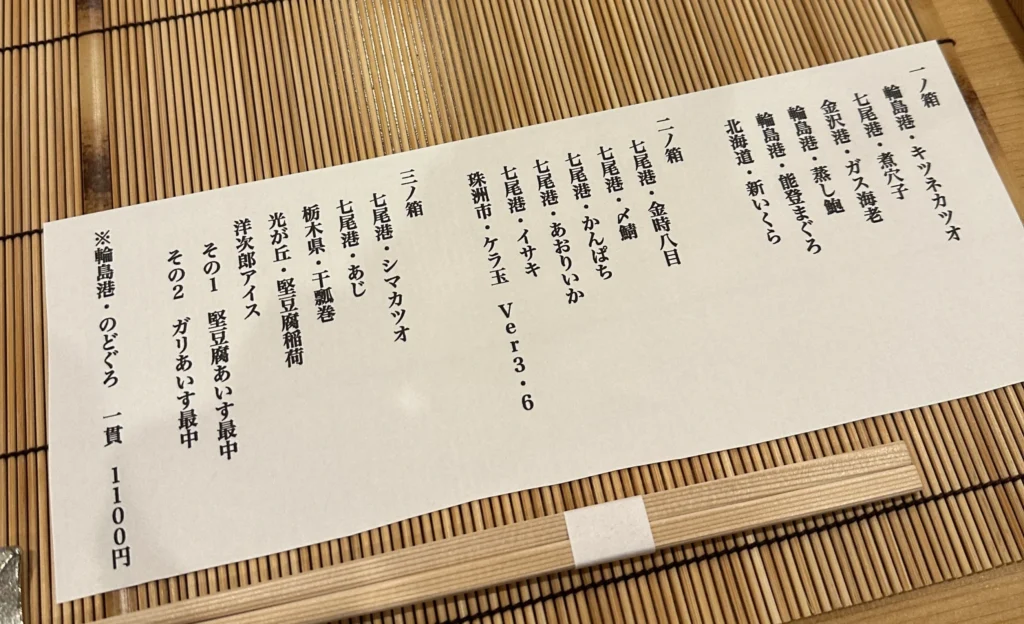 一ノ箱
輪島港・キツネカツオ
七尾港・煮穴子
金沢港・ガス海老
輪島港・蒸し鮑
輪島港・能登まぐろ
北海道・新いくら
二ノ箱
七尾港・金時八目
七尾港・〆鯖
七尾港・かんぱち
七尾港・あおりいか
七尾港・イサキ
珠洲市・ケラ玉 Ver3.6
三ノ箱
七尾港・シマカツオ
七尾港・あじ
栃木県・干瓢巻
光が丘・堅豆腐稲荷
洋次郎アイス
その1 堅豆腐あいす最中
その2 ガリあいす最中
※輪島港・のどぐろ 一貫 1100円